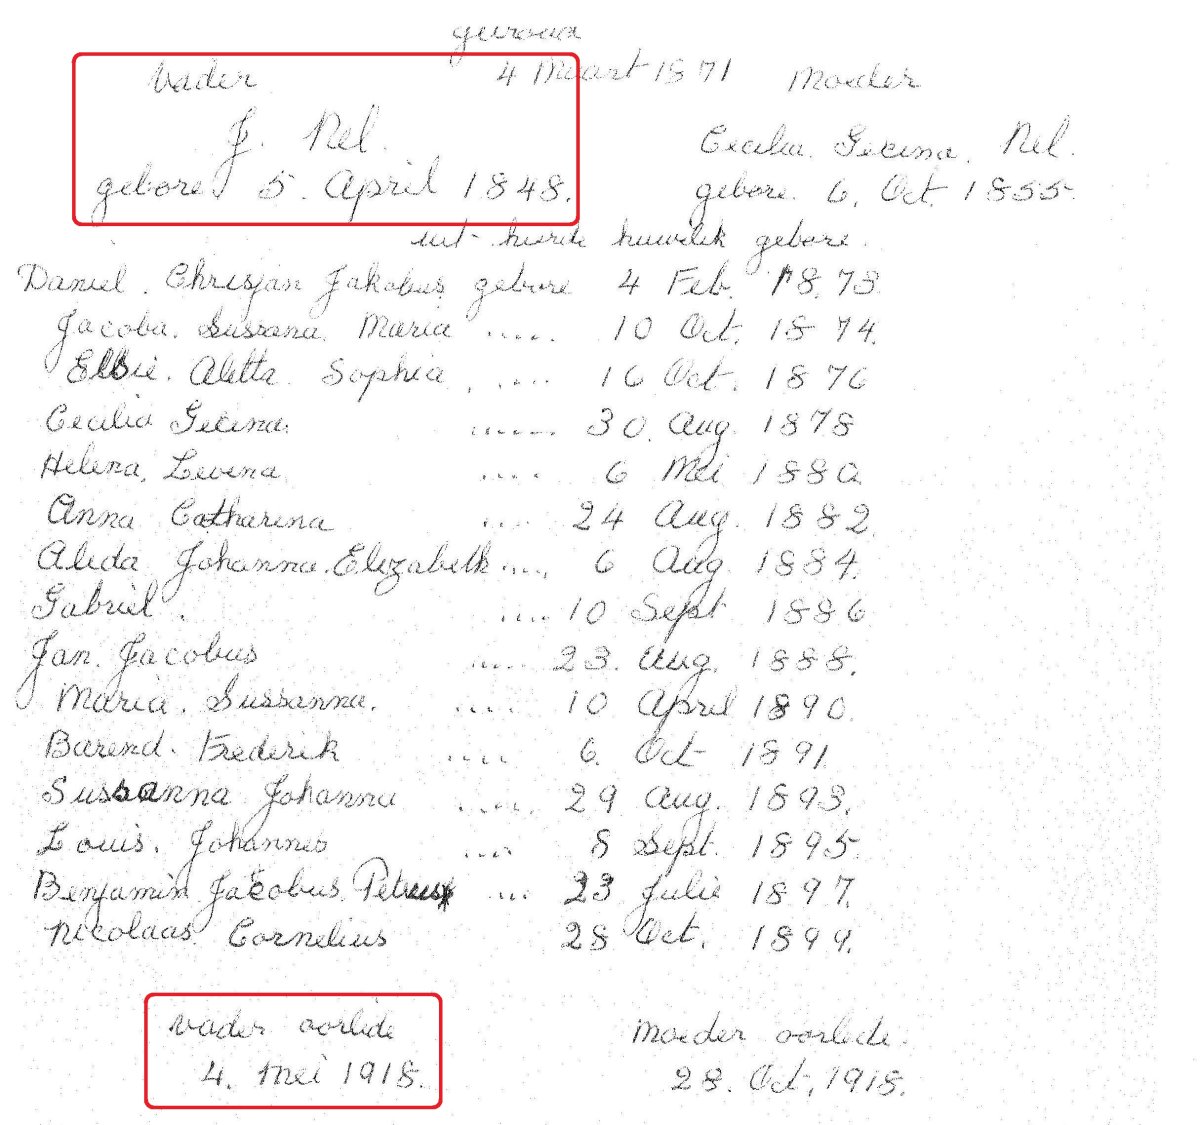 getroud
4 Maart 1871
Vader
Moeder
J. Nel.
Cecilia Gecina. Nel.
gebore 5. April 1848.
gebore. 6. Oct. 1855.
uit hierdie huwelik gebore.
Daniel. Chrisjan Jakobus gebore 4 Feb. 1873
Jacoba. Sussana. Maria .... 10 Oct. 1874.
Elsie. Aletta. Sophia. .... 16 Oct. 1876
Cecilia Gecina. ...... 30. Aug. 1878
Helena, Levina .... 6 Mei 1880.
Anna Catharina .... 24 Aug. 1882.
Aleda Johanna. Elizabeth .... 6 Aug 1884.
Gabriel. .... 10 Sept 1886
Jan. Jacobus .... 23. Aug. 1888.
Maria. Sussanna. .... 10 April 1890.
Barend. Frederik .... 6. Oct 1891.
Sussanna Johanna .... 29 Aug. 1893.
Louis. Johannes .... 8 Sept. 1895.
Benjamin Jacobus. Petrus ... 23 Julie 1897.
Nicolaas Cornelius 28 Oct. 1899.
vader oorlede
Moeder oorlede.
4. Mei 1918.
28. Oct, 1918.